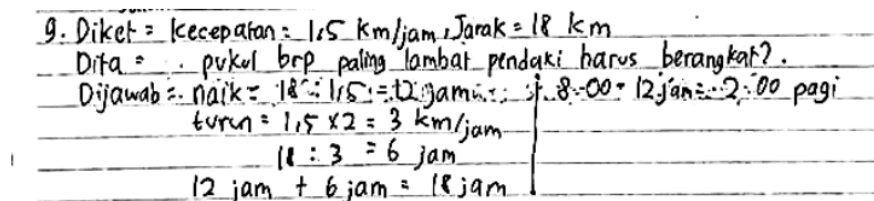 9. Diket = kecepatan = 1,5 km/jam, Jarak = 18 km
Dita = . pukul brp paling lambat pendaki harus berangkat?.
Dijawab = naik = 18 : 1,5 = 12 jam 8.00 - 12 jam = 2.00 pagi
turun = 1,5 x 2 = 3 km/jam
18 : 3 = 6 jam
12 jam + 6 jam = 18 jam